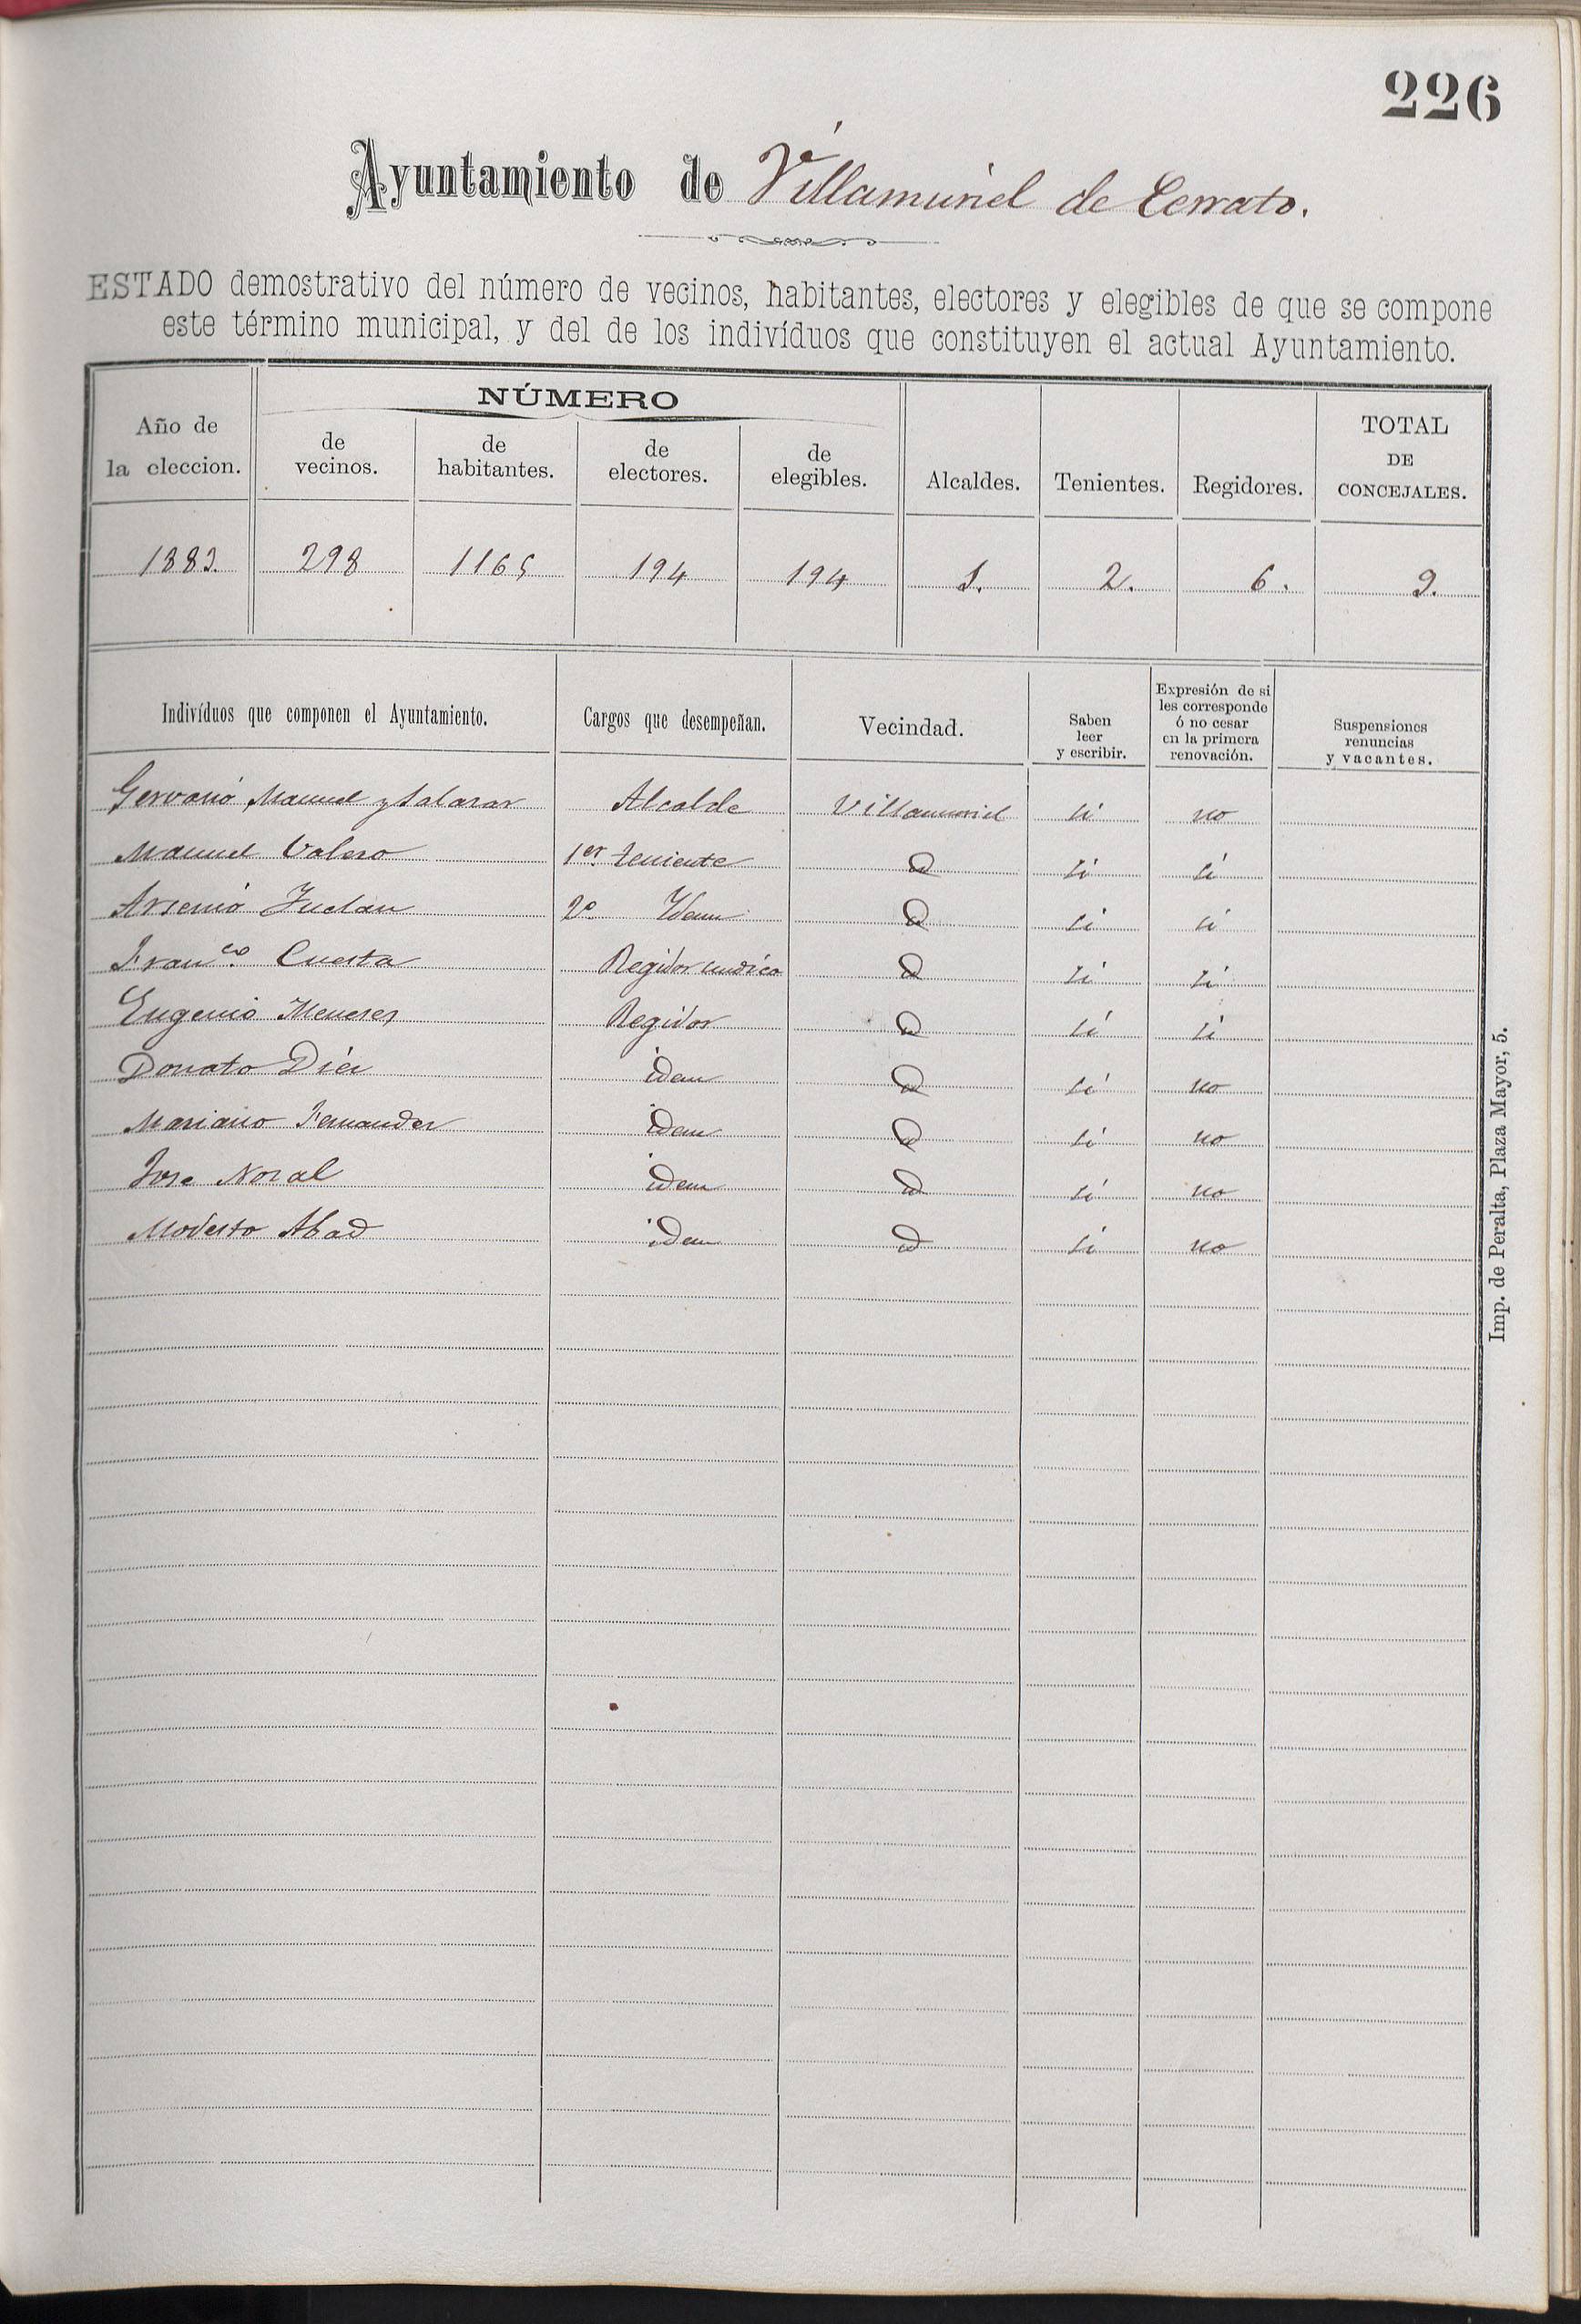 226
Ayuntamiento de Villamuriel de Cerrato.
ESTADO demostrativo del número de vecinos, habitantes, electores y elegibles de que se compone
este término municipal, y del de los indivíduos que constituyen el actual Ayuntamiento.
NÚMERO
Año de la eleccion. de vecinos. de habitantes. de electores. de elegibles. Alcaldes. Tenientes. Regidores. TOTAL DE CONCEJALES.
1883. 298 1165 194 194 1. 2. 6. 9.
Indivíduos que componen el Ayuntamiento. Cargos que desempeñan. Vecindad. Saben leer y escribir. Expresión de si les corresponde ó no cesar en la primera renovación. Suspensiones renuncias y vacantes.
Gervasio Manuel y Salazar Alcalde Villamuriel si no
Manuel Valero 1er. teniente id si si
Arsenio Inclan 2º Idem id si si
Franco. Cuesta Regidor sindico id si si
Eugenio Meneses Regidor id si si
Donato Diez idem id si no
Mariano Fernandez idem id si no
Jose Nozal idem id si no
Modesto Abad idem id si no
Imp. de Peralta, Plaza Mayor, 5.